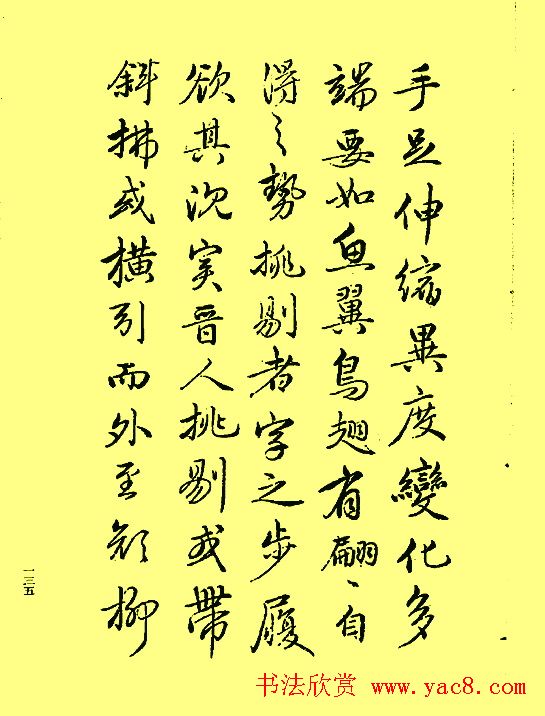 手足伸縮異度變化多
端要如魚翼鳥翅有翩、自
得之勢挑剔者字之步履
欲其沉實晉人挑剔或帶
斜拂或橫引而外至顏柳
一三五
书法欣赏 www.yac8.com